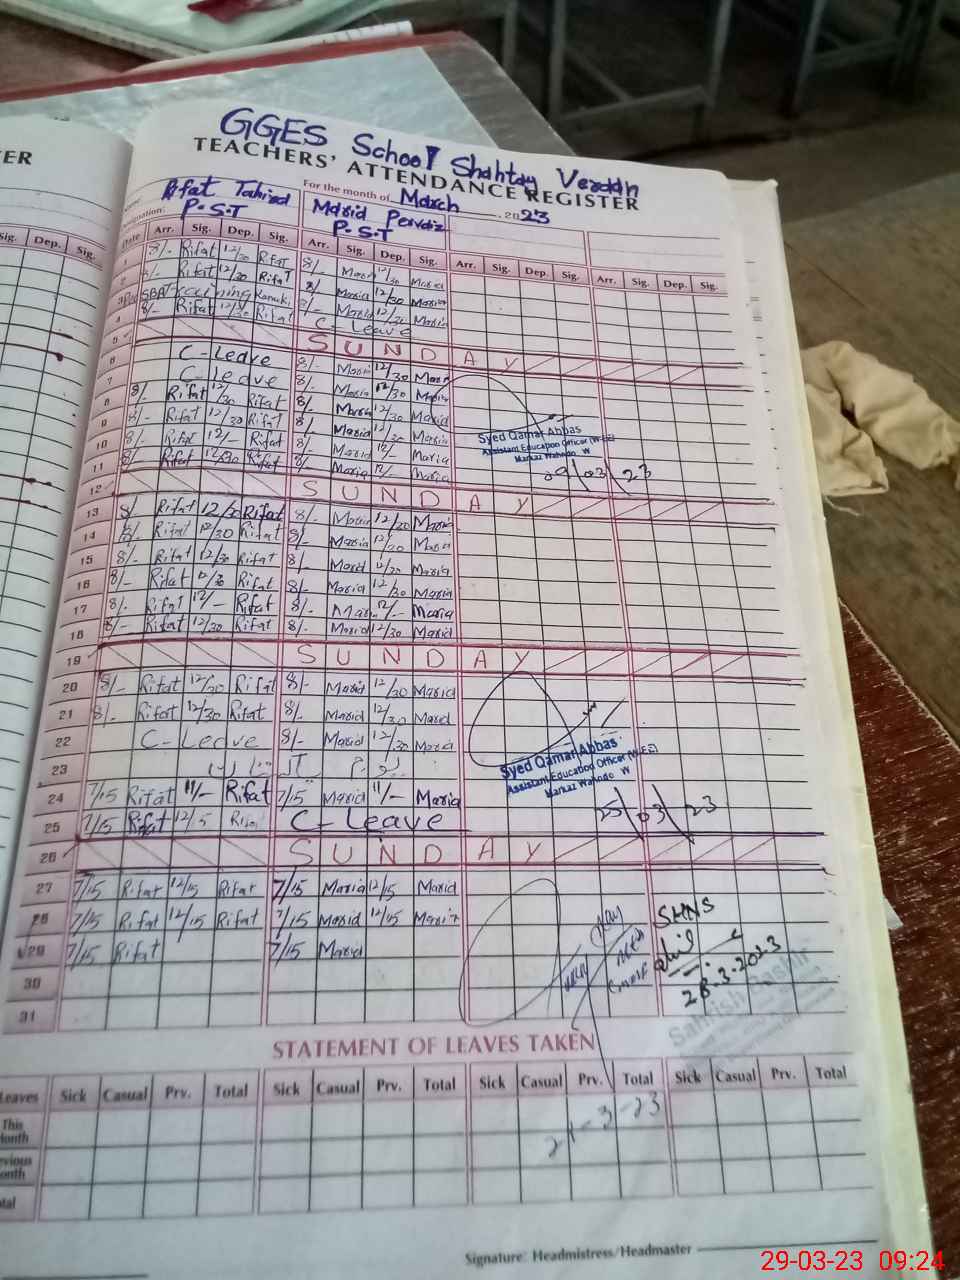 GGES School Shahtay
TEACHERS' ATTENDANCE REGISTER
For the month of March 2023
Rifat
P.S.T
P.S.T
Date Arr. Sig. Dep. Sig. Arr. Sig. Dep. Sig. Arr. Sig. Dep. Sig. Arr. Sig. Dep. Sig.
1 8/- Rifat 12/30 Rifat 8/- Maria 12/30 Maria
2 8/- Rifat 12/30 Rifat 8/- Maria 12/30 Maria
3 8/- Maria 12/30 Maria
4 8/- Rifat 12/30 Rifat C-Leave
5 SUNDAY
6 C-Leave 8/- Maria 12/30 Maria
7 C-Leave 8/- Maria 12/30 Maria
8 8/- Rifat 12/30 Rifat 8/- Maria 12/30 Maria
9 8/- Rifat 12/30 Rifat 8/- Maria 12/30 Maria
10 8/- Rifat 12/- Rifat 8/- Maria 12/- Maria
11 8/- Rifat 12/30 Rifat 8/- Maria 12/- Maria
Syed Qamar Abbas
Assistant Education Officer (W-EE)
Markaz Wahndo W
09/03/23
12 SUNDAY
13 8/ Rifat 12/30 Rifat 8/- Maria 12/20 Maria
14 8/- Rifat 12/30 Rifat 8/- Maria 12/20 Maria
15 8/- Rifat 12/30 Rifat 8/- Maria 12/30 Maria
16 8/- Rifat 12/30 Rifat 8/- Maria 12/30 Maria
17 8/- Rifat 12/- Rifat 8/- Maria 12/- Maria
18 8/- Rifat 12/30 Rifat 8/- Maria 12/30 Maria
19 SUNDAY
20 8/- Rifat 12/20 Rifat 8/- Maria 12/20 Maria
21 8/- Rifat 12/30 Rifat 8/- Maria 12/30 Maria
22 C-Leave 8/- Maria 12/30 Maria
23
Syed Qamar Abbas
Assistant Education Officer (W-EE)
Markaz Wahndo W
24 7/15 Rifat 11/- Rifat 7/15 Maria 11/- Maria
25 7/15 Rifat 12/15 Rifat C-Leave
25/03/23
26 SUNDAY
27 7/15 Rifat 12/15 Rifat 7/15 Maria 12/15 Maria
28 7/15 Rifat 12/15 Rifat 7/15 Maria 12/15 Maria
29 7/15 Rifat 7/15 Maria
30
31
28-3-2023
STATEMENT OF LEAVES TAKEN
Leaves Sick Casual Prv. Total Sick Casual Prv. Total Sick Casual Prv. Total Sick Casual Prv. Total
This
Month
21-3-23
Previous
Month
Total
Signature: Headmistress/Headmaster
29-03-23 09:24